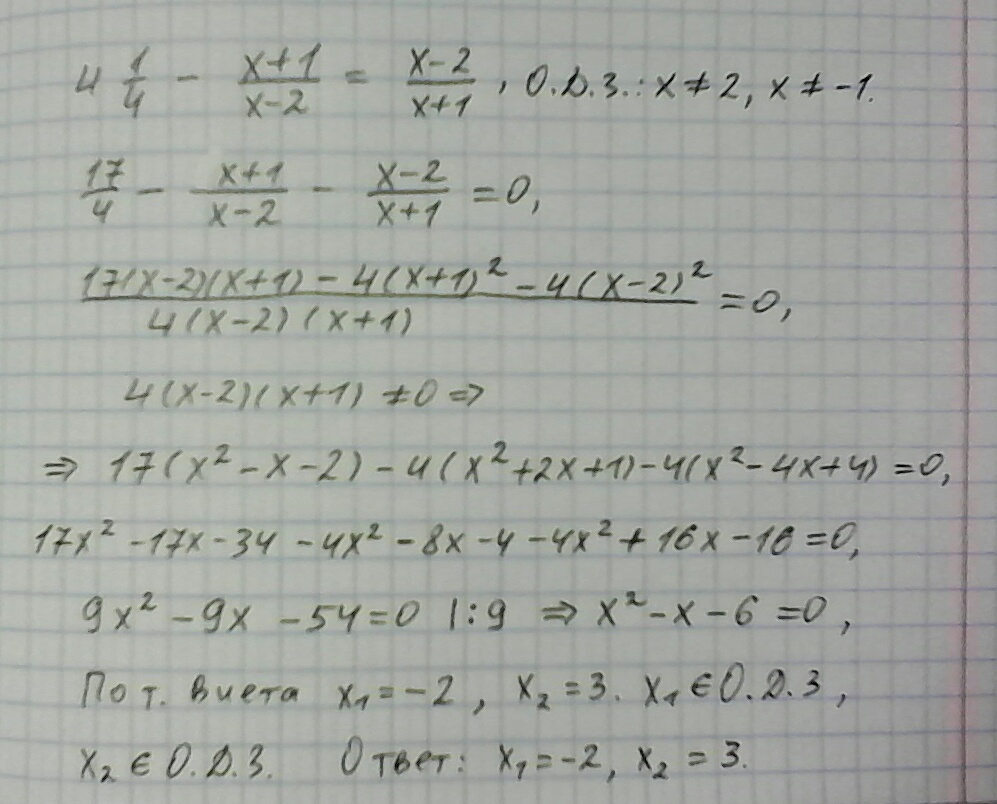 4 1/4 − (x+1)/(x−2) = (x−2)/(x+1), О.Д.З.: x ≠ 2, x ≠ −1.
17/4 − (x+1)/(x−2) − (x−2)/(x+1) = 0,
(17(x−2)(x+1) − 4(x+1)² − 4(x−2)²)/(4(x−2)(x+1)) = 0,
4(x−2)(x+1) ≠ 0 ⇒
⇒ 17(x² − x − 2) − 4(x² + 2x + 1) − 4(x² − 4x + 4) = 0,
17x² − 17x − 34 − 4x² − 8x − 4 − 4x² + 16x − 16 = 0,
9x² − 9x − 54 = 0 |:9 ⇒ x² − x − 6 = 0,
По т. Виета x₁ = −2, x₂ = 3. x₁ ∈ О.Д.З,
x₂ ∈ О.Д.З. Ответ: x₁ = −2, x₂ = 3.